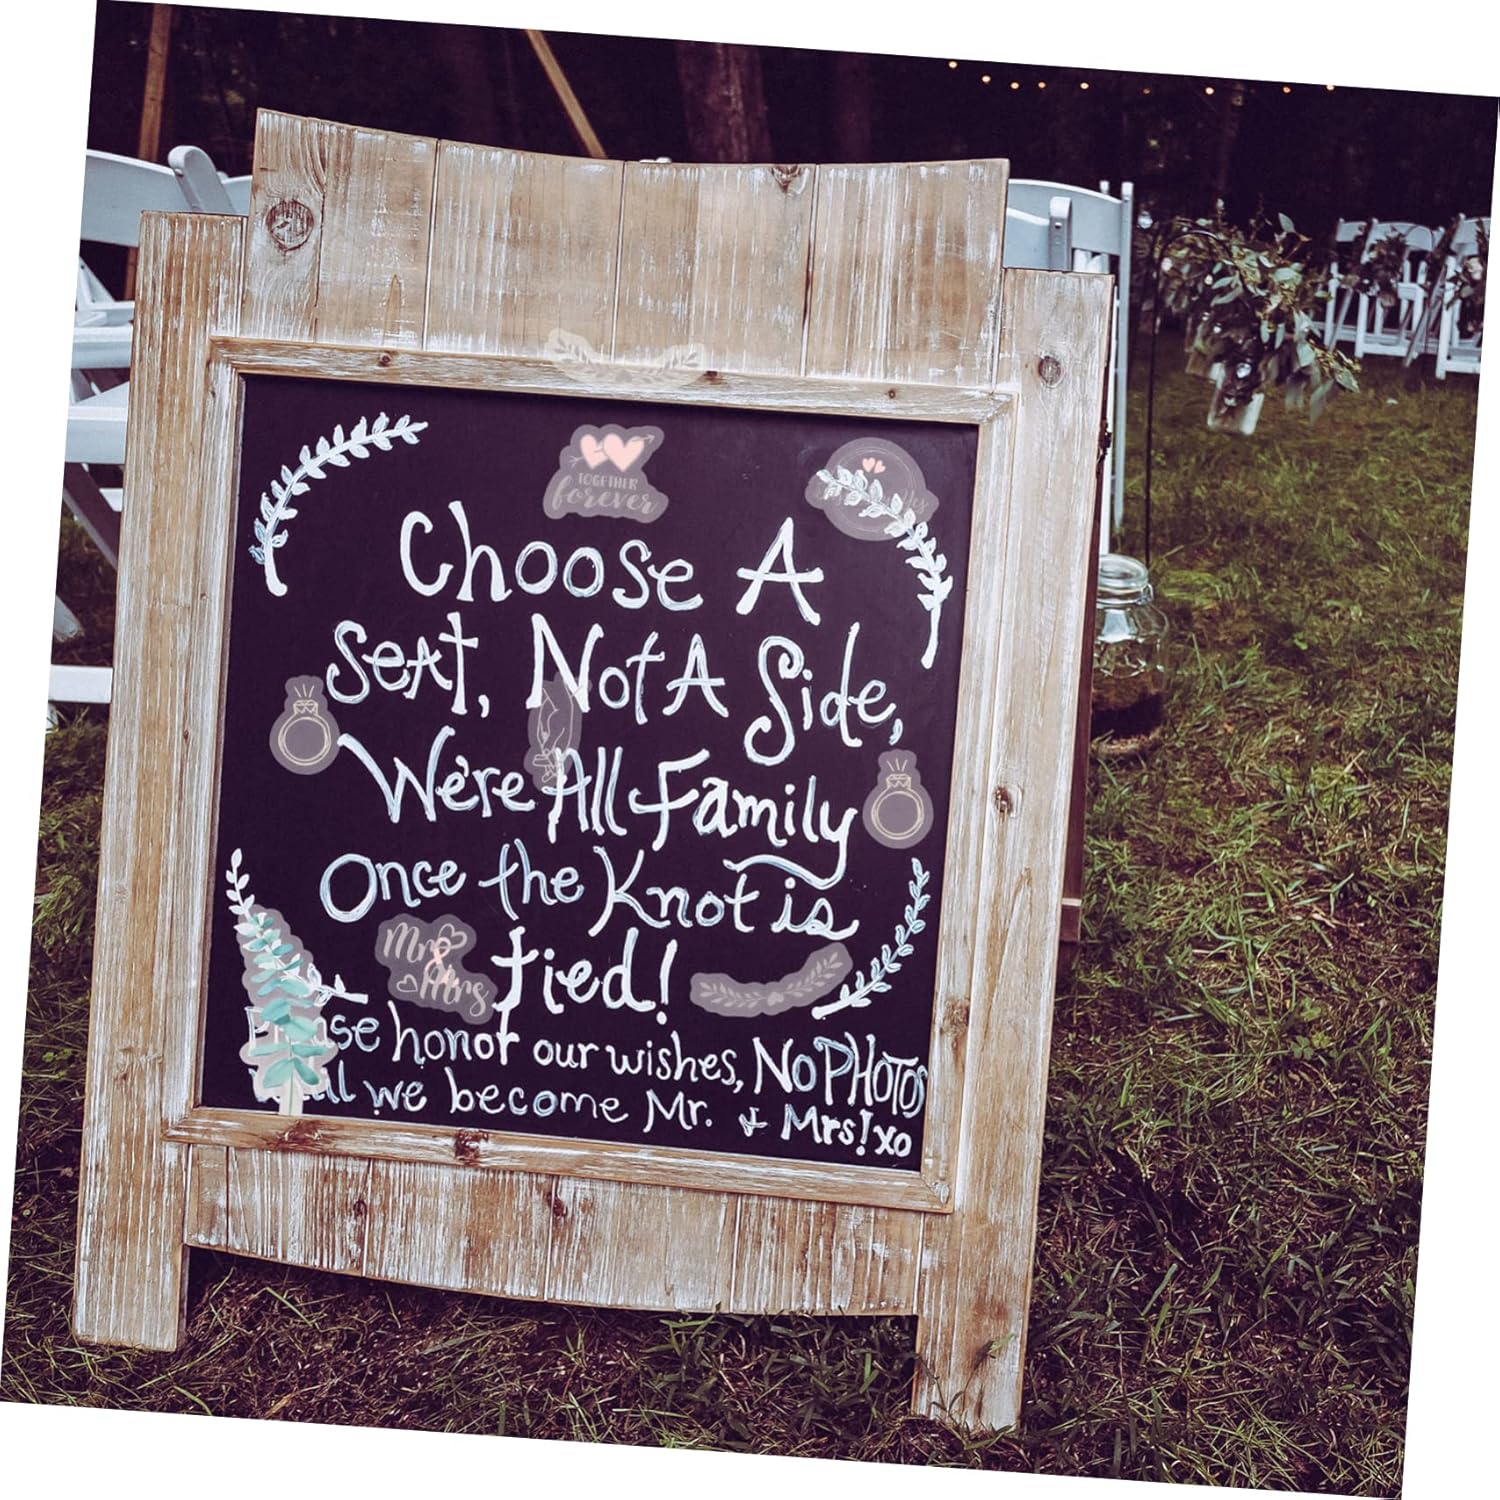 TOGETHER
forever
Choose A
Seat, Not A Side,
We're All Family
Once the Knot is
tied!
Mr
&
Mrs
honor our wishes, NO PHOTOS
we become Mr. & Mrs! xo